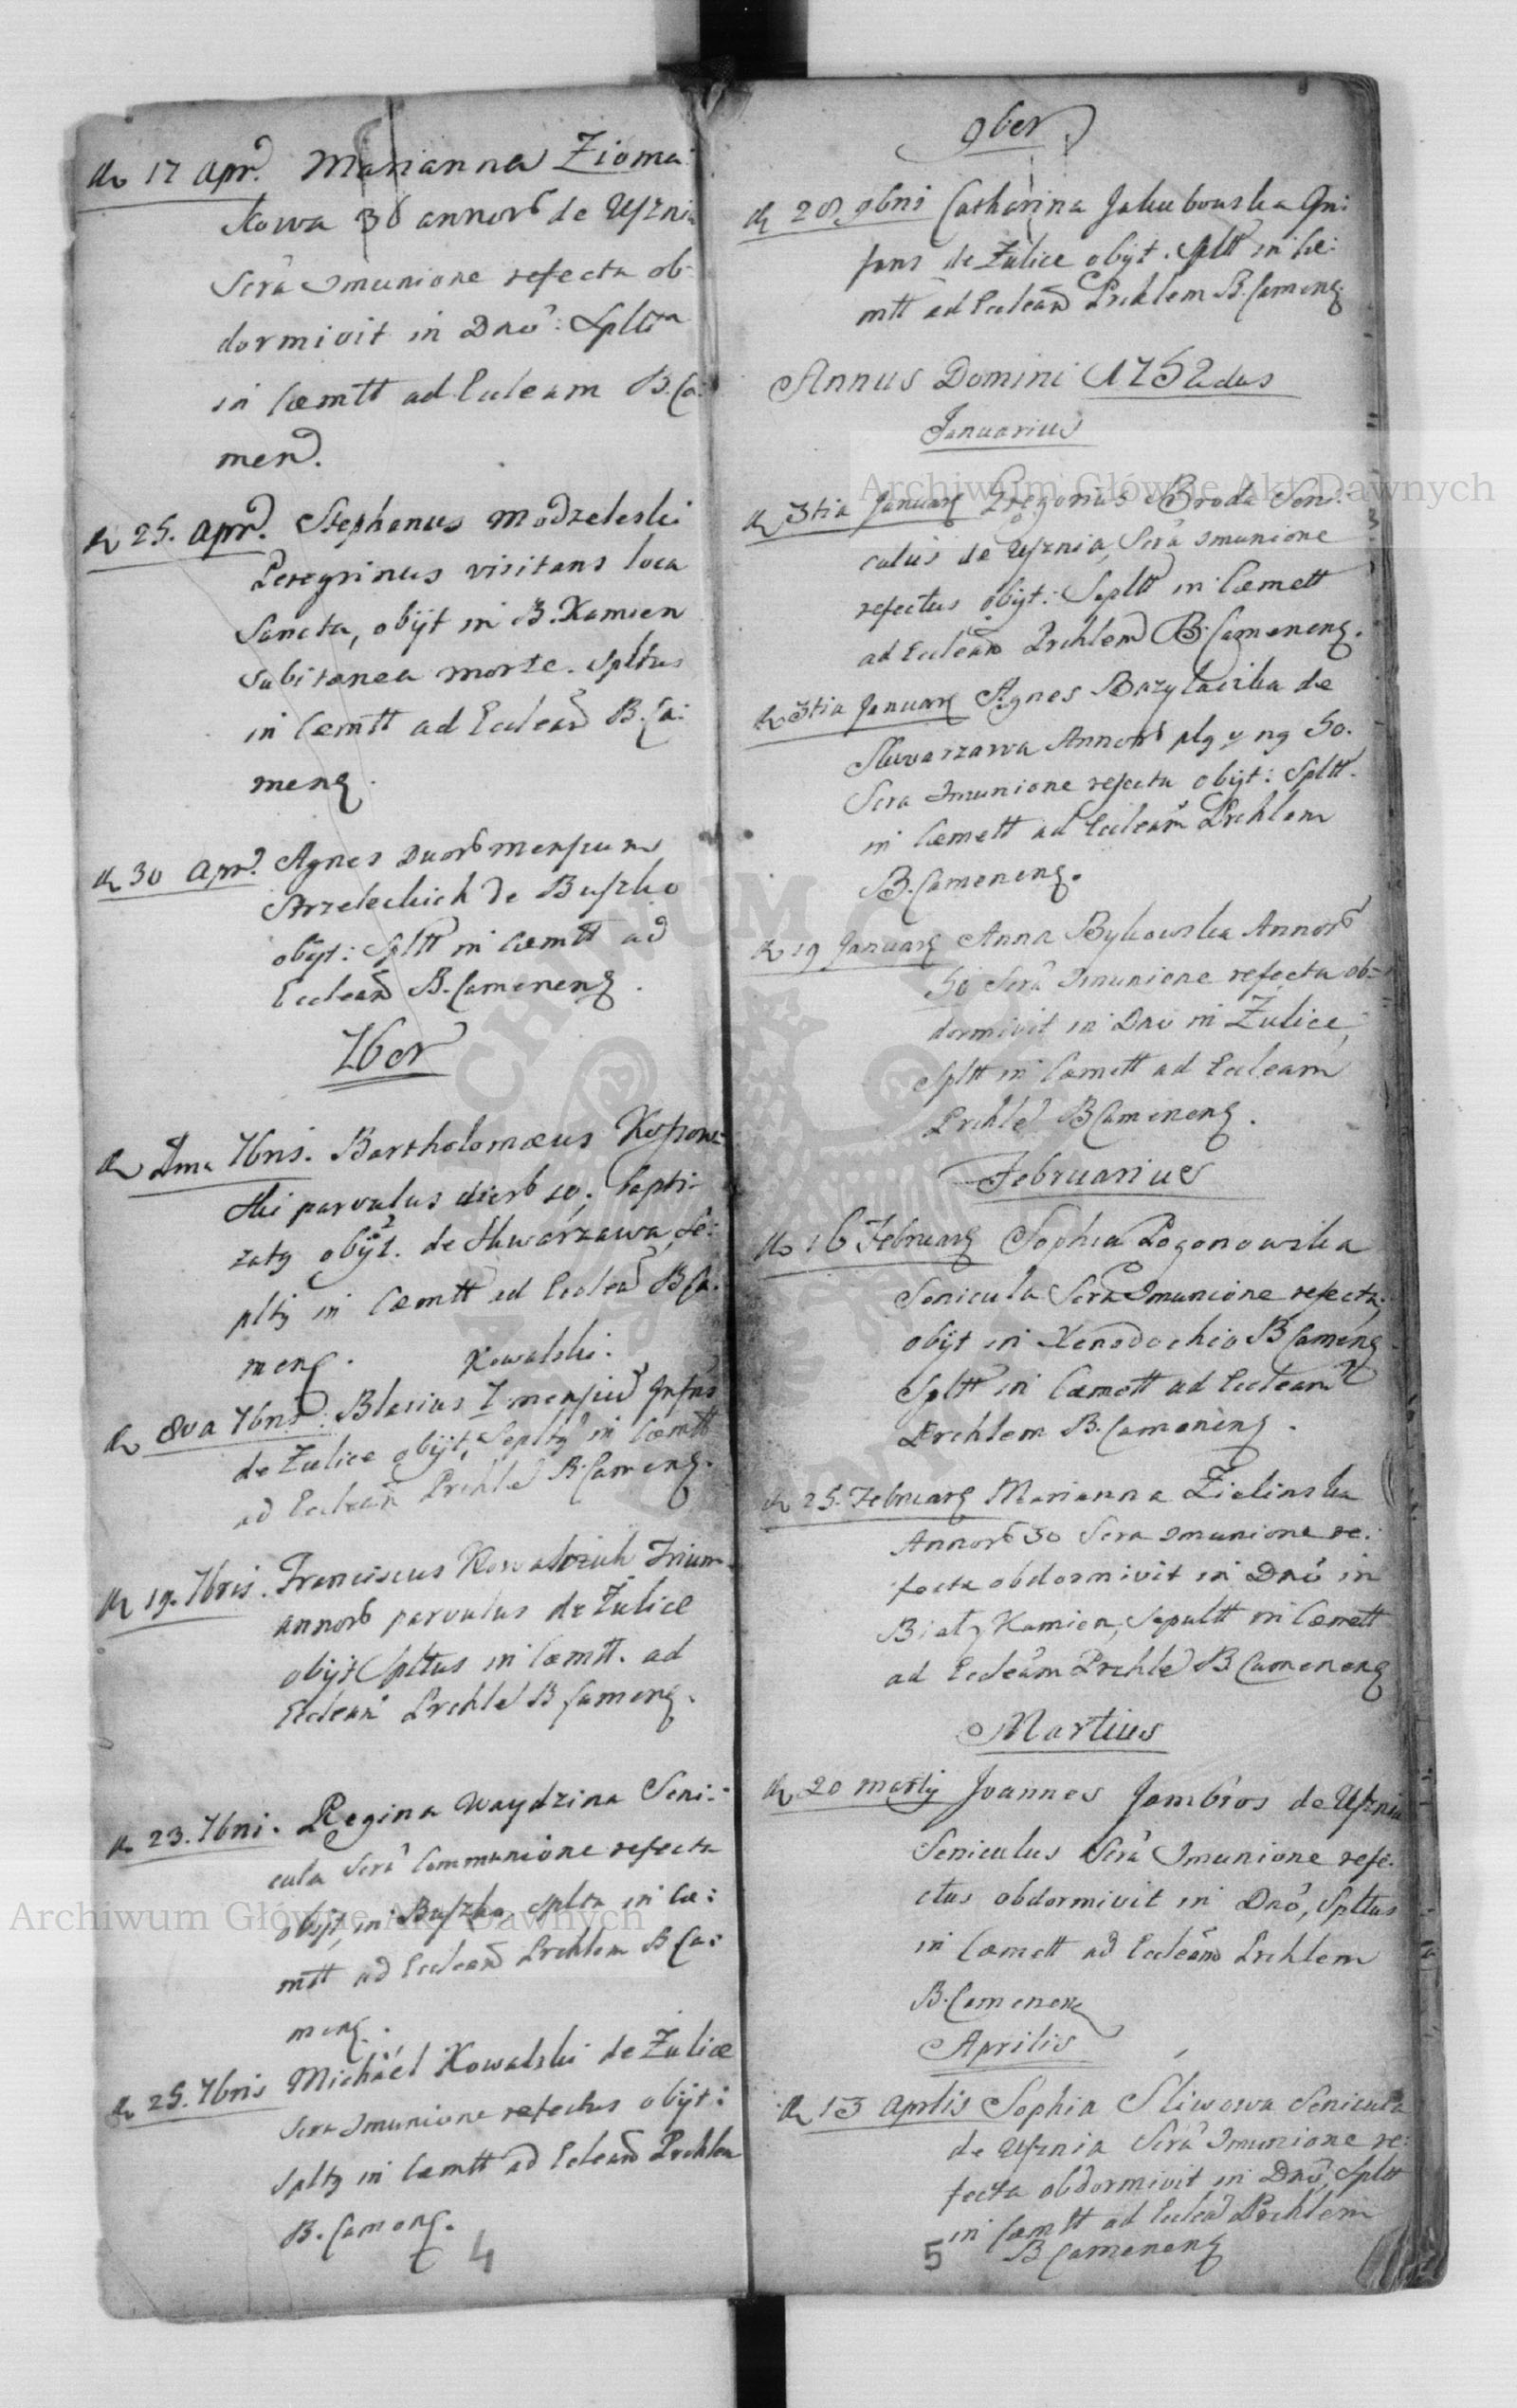 17 Apr. Marianna Zioma:
kowa 36 annorb de Usznia
Scra Imunione refecta ob-
dormivit in Dno: Splta
in Cœmtt ad Eccleam B. Ca:
men.
25. Apr. Stephanus Modzeleski
Peregrinus visitans loca
Sancta, obijt in B. Kamien
subitanea morte. Spltus
in Cœmtt ad Eccleam B. Ca:
meng.
30 Apr. Agnes Duorb mensium
Strzeleckich de Buszko
obijt: Spltt in Cœmtt ad
Eccleam B. Cameneng.
7ber
2ma 7bris. Bartholomæus
ski parvulus dierb 10; bapti-
zatg obijt. de Skwarzawa, Se:
pltg in Cœmtt ad Eccleam B Ca.
meng. Kowalski.
8va 7bris. Blasius 7 mensiu Infns
de Zulice obijt, Sepltg in Cœmtt
ad Eccleam Prchle B. Cameng.
19. 7bris. Franciscus Kowalczuk Trium
annorb parvulus de Zulice
obijt Spltus in Cœmtt. ad
Eccleam Prchle B Cameng.
23. 7bri. Regina Waydzina Seni-
cula Scra Communione refecta
obijt, in Buszko, splta in Cœ:
mtt ad Eccleam Prchlem B Ca:
meng.
25. 7bris Michaël Kowalski de Zulice
Scra Imunione refectus obijt:
Spltg in Cœmtt ad Eccleam Prchlem
B. Cameng.
4
9ber
28 9bris Catharina Jakubowska Ini
fans de Zulice obijt. Spltt in Cœ:
mtt ad Eccleam Prchlem B. Cameng
Annus Domini 1752dus
Januarius
3tia Januarg Gregorius Broda Sen:
culus de Usznia, Scra Imunione
refectus obijt: Sepltt in Cœmett
ad Eccleam Prchlem B. Cameneng.
3tia Januarg Agnes Bazylacika de
Skwarzawa Annorb plg y ng 50.
Scra Imunione refecta obijt: Spltt.
in Cœmett ad Eccleam Prchlem
B. Cameneng.
19 Januarg Anna Bykowska Annorb
50 Scra Imunione refecta ob-
dormivit in Dno in Zulice,
Spltt in Cœmett ad Eccleam
Prchle B Cameneng.
Februarius
16 Februarg Sophia Pogonowska
Senicula Scra Imunione refecta,
obijt in Xenodochio B Cameng
Spltt in Cœmett ad Eccleam
Prchlem B. Cameneng.
25. Februarg Marianna Zielinska
Annorb 30 Scra Imunione re:
fecta obdormivit in Dno in
Biały Kamien, Sepultt in Cœmett
ad Eccleam Prchle B Cameneng
Martius
20 Martij Joannes Jambros de Usznia
Seniculus Scra Imunione refe-
ctus obdormivit in Dno, Spltus
in Cœmett ad Eccleam Prchlem
B. Cameneng
Aprilis
13 Aprlis Sophia Sliwowa Senicula
de Usznia Scra Imunione re:
fecta obdormivit in Dno, Spltt
in Cœmtt ad Eccleam Prchlem
B Cameneng
5
Archiwum Główne Akt Dawnych
Archiwum Główne Akt Dawnych